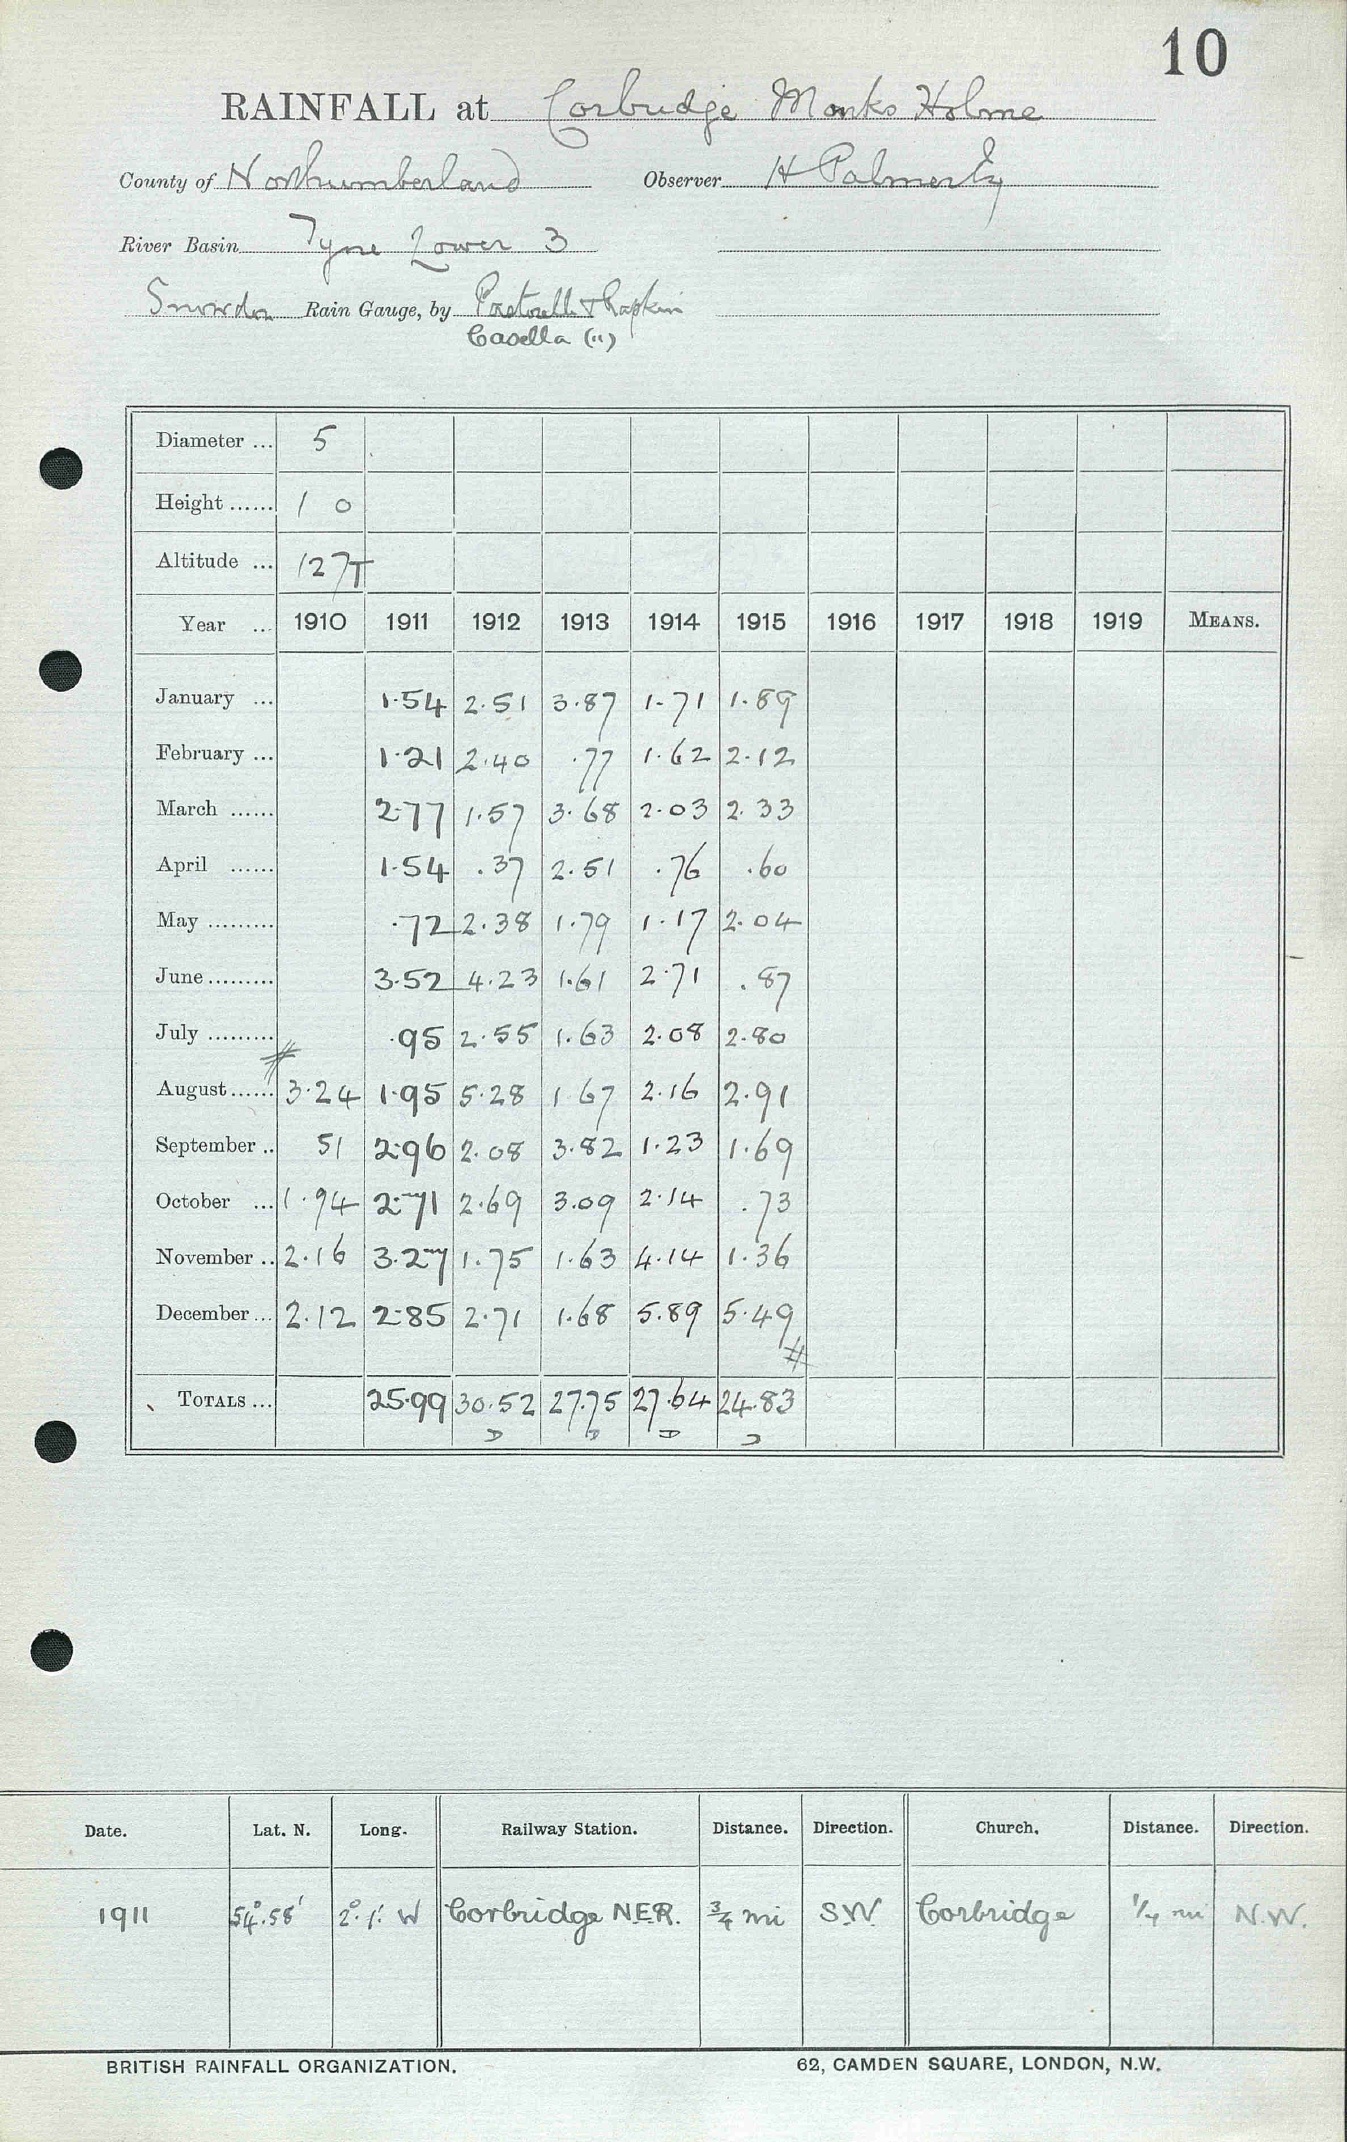 10
RAINFALL at Corbridge Monks Holme
County of Northumberland Observer H Palmer Esq
River Basin Tyne Lower 3
Snowdon Rain Gauge, by Pastorelli & Rapkin
Casella (")
Diameter ... 5
Height ...... 1 0
Altitude ... 127T
Year ... 1910 1911 1912 1913 1914 1915 1916 1917 1918 1919 MEANS.
January ... 1.54 2.51 3.87 1.71 1.89
February ... 1.21 2.40 .77 1.62 2.12
March ...... 2.77 1.57 3.68 2.03 2.33
April ...... 1.54 .37 2.51 .76 .60
May ......... .72 2.38 1.79 1.17 2.04
June ......... 3.52 4.23 1.61 2.71 .87
July ......... .95 2.55 1.63 2.08 2.80
August ...... 3.24 1.95 5.28 1 67 2.16 2.91
September .. 51 2.96 2.08 3.82 1.23 1.69
October ... 1.94 2.71 2.69 3.09 2.14 .73
November .. 2.16 3.27 1.75 1.63 4.14 1.36
December ... 2.12 2.85 2.71 1.68 5.89 5.49
TOTALS ... 25.99 30.52 27.75 27.64 24.83
D D D D
Date. Lat. N. Long. Railway Station. Distance. Direction. Church. Distance. Direction.
1911 54°.58' 2°.1'. W Corbridge N.E.R. ¾ mi S.W. Corbridge ¼ mi N.W.
BRITISH RAINFALL ORGANIZATION. 62, CAMDEN SQUARE, LONDON, N.W.